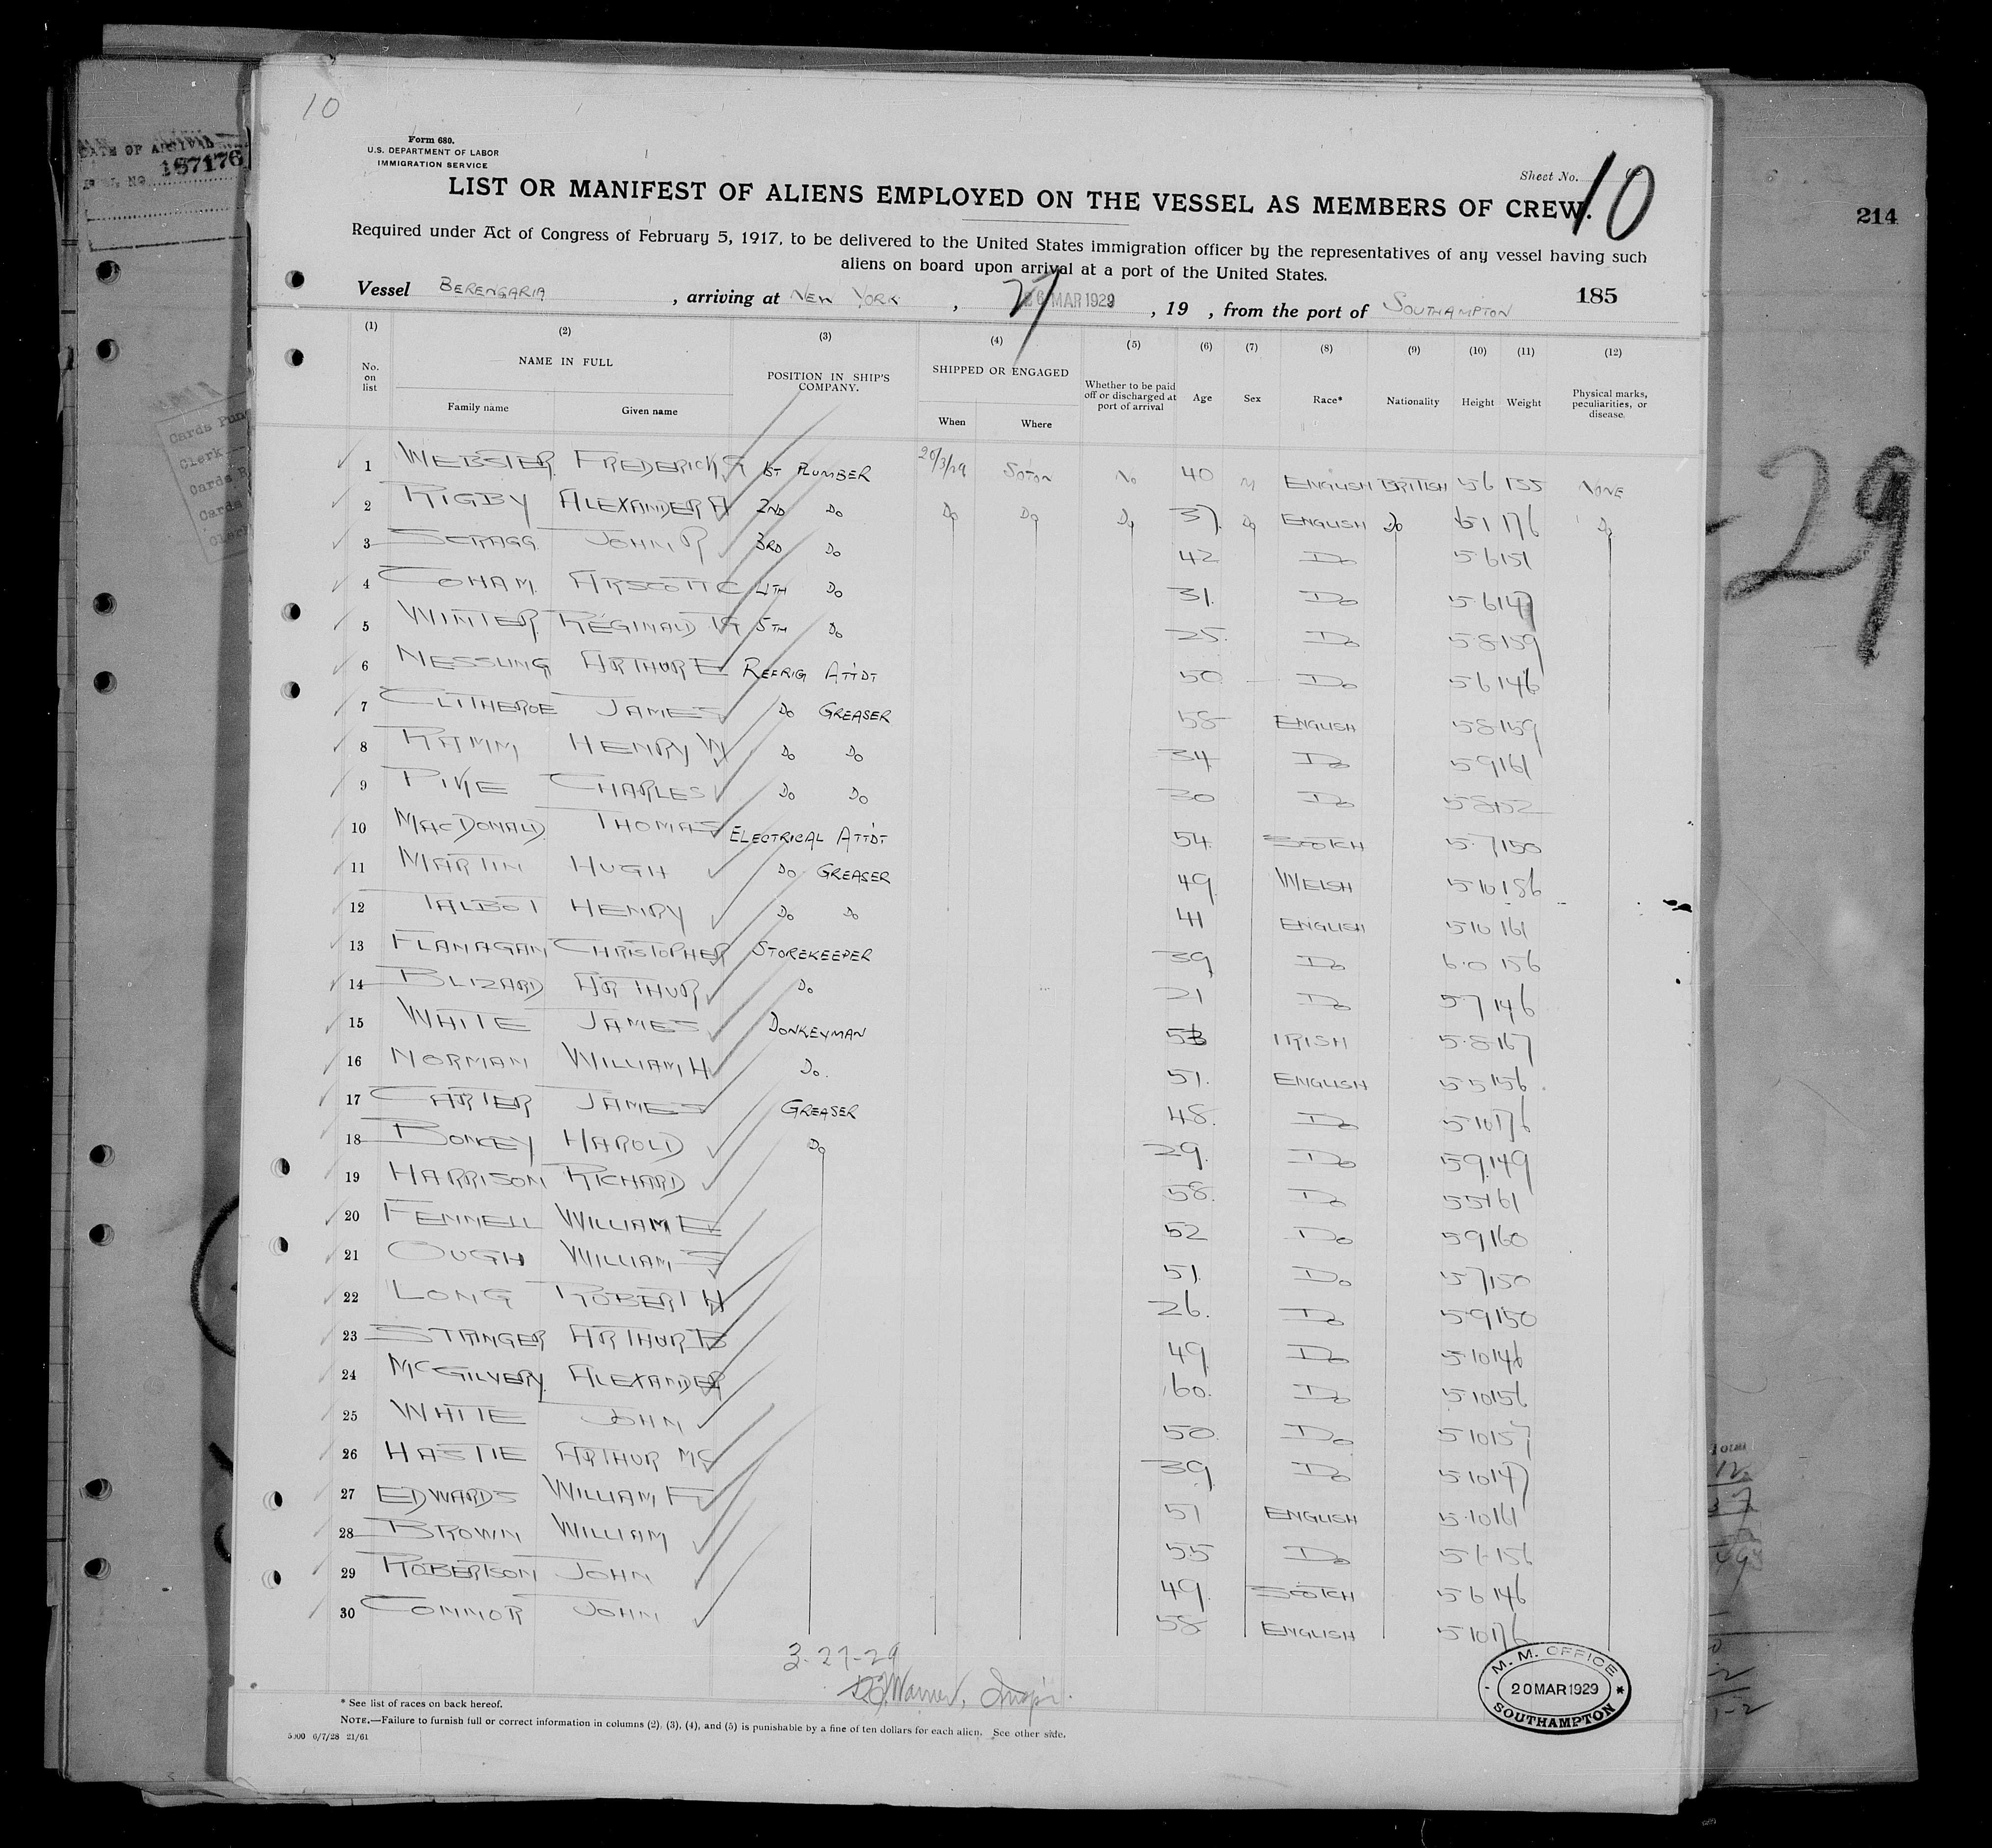 10
Form 680.
U.S. DEPARTMENT OF LABOR
IMMIGRATION SERVICE
Sheet No. 10
LIST OR MANIFEST OF ALIENS EMPLOYED ON THE VESSEL AS MEMBERS OF CREW.
Required under Act of Congress of February 5, 1917, to be delivered to the United States immigration officer by the representatives of any vessel having such
aliens on board upon arrival at a port of the United States.
185
Vessel BERENGARIA, arriving at NEW YORK, 27 MAR 1929, 19 , from the port of SOUTHAMPTON
(1) (2) (3) (4) (5) (6) (7) (8) (9) (10) (11) (12)
No. on list NAME IN FULL Family name Given name POSITION IN SHIP'S COMPANY. SHIPPED OR ENGAGED When Where Whether to be paid off or discharged at port of arrival Age Sex Race* Nationality Height Weight Physical marks, peculiarities, or disease.
1 WEBSTER FREDERICK G 1ST PLUMBER 20/3/29 SOTON NO 40 M ENGLISH BRITISH 5 6 155 NONE
2 RIGBY ALEXANDER A 2ND DO DO DO DO 37 DO ENGLISH DO 176 DO
3 SCRAGG JOHN R 3RD DO 42 DO 5 6 151
4 COHAM ARSCOTT C 4TH DO 31 DO 5 6 147
5 WINTER REGINALD 5TH DO 25 DO 5 8 159
6 NESSLING ARTHUR E REFRIG ATTDT 50 DO 5 6 146
7 CLITHEROE JAMES DO GREASER 58 ENGLISH 5 8 159
8 RAMM HENRY W DO DO 34 DO 5 9 161
9 PIKE CHARLES DO DO 30 DO 5 8 152
10 MACDONALD THOMAS ELECTRICAL ATTDT 54 SCOTCH 5 7 150
11 MARTIN HUGH DO GREASER 49 WELSH 5 10 186
12 TALBOT HENRY DO DO 41 ENGLISH 5 10 161
13 FLANAGAN CHRISTOPHER STOREKEEPER 39 DO 6 0 156
14 BLIZARD ARTHUR DO 21 DO 5 7 146
15 WHITE JAMES DONKEYMAN IRISH 5 8 167
16 NORMAN WILLIAM H DO 51 ENGLISH 5 5 156
17 CARTER JAMES GREASER 48 DO 5 10 176
18 BONCEY HAROLD DO 29 DO 5 9 149
19 HARRISON RICHARD 58 DO 5 5 161
20 FENNELL WILLIAM E 52 DO 5 9 160
21 OUGH WILLIAM S 51 DO 5 7 150
22 LONG ROBERT H 26 DO 5 9 150
23 STRINGER ARTHUR B 49 DO 5 10 146
24 MCGILVERY ALEXANDER 60 DO 5 10 156
25 WHITE JOHN 50 DO 5 10 157
26 HASTIE ARTHUR MC 39 DO 5 10 147
27 EDWARDS WILLIAM F 51 ENGLISH 5 10 161
28 BROWN WILLIAM 55 DO 5 6 156
29 ROBERTSON JOHN 49 SCOTCH 5 6 146
30 CONNOR JOHN 58 ENGLISH 5 10 176
3-27-29
Warner, Insp'r.
M. M. OFFICE
20 MAR 1929
SOUTHAMPTON
* See list of races on back hereof.
NOTE.—Failure to furnish full or correct information in columns (2), (3), (4), and (5) is punishable by a fine of ten dollars for each alien. See other side.
5000 6/7/28 21/61
DATE OF ARRIVAL
187176
Cards Pun
Clerk
Cards
Cards
Clerk
214
-29